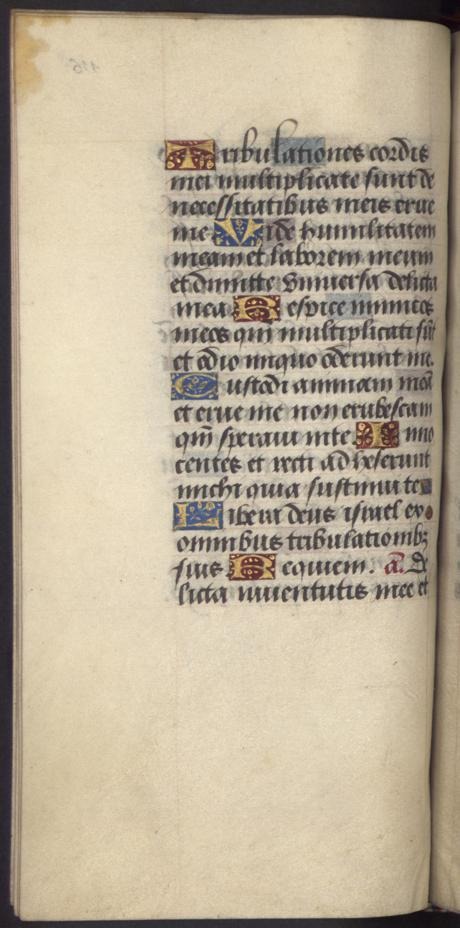 Tribulationes cordis
mei multiplicate sunt de
necessitatibus meis erue
me Vide humilitatem
meam et laborem meum
et dimitte vniuersa delicta
mea Respice inimicos
meos qm̄ multiplicati sūt
et odio iniquo oderunt me.
Custodi animam meā
et erue me non erubescam
qm̄ speraui in te Inno
centes et recti adheserunt
michi quia sustinui te
Libera deus israel ex
omnibus tribulationibꝫ
suis Requiem. a. De
licta iuuentutis mee et